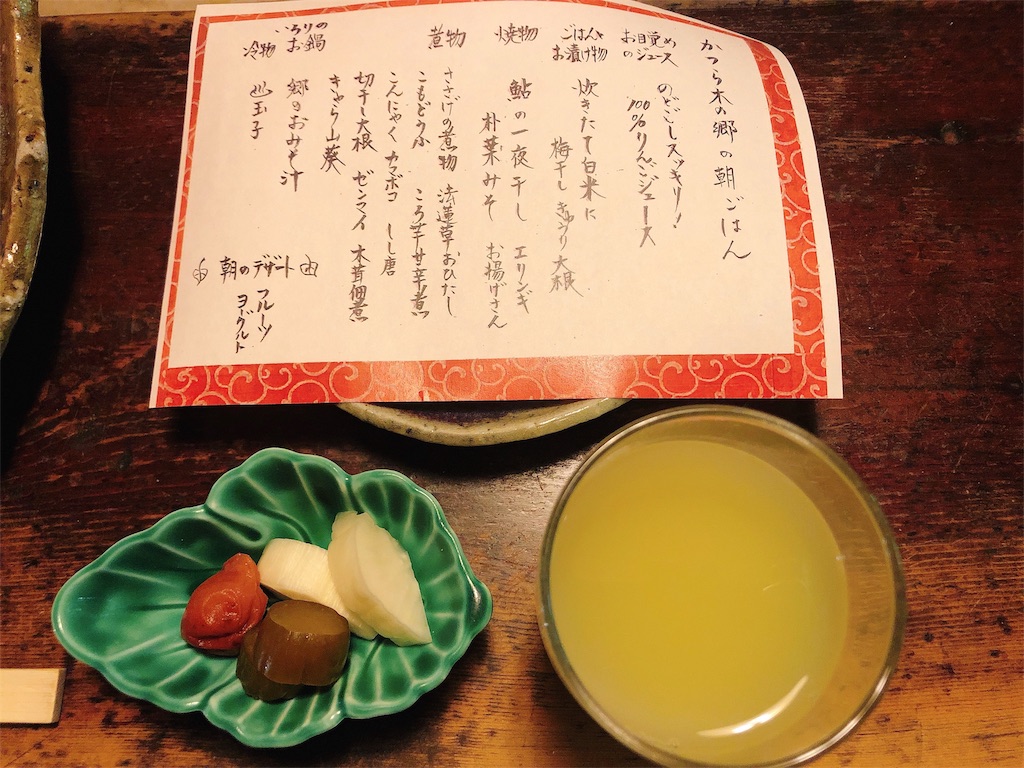 かつら木の郷の朝ごはん
お目覚め
のジュース
のどごしスッキリ!
100%りんごジュース
ごはんと
お漬け物
炊きたて白米に
梅干し きゅうり 大根
焼物
鮎の一夜干し エリンギ
朴葉みそ お揚げさん
煮物
ささげの煮物 法蓮草おひたし
こもどうふ ころ芋甘辛煮
こんにゃく カマボコ しし唐
切干し大根 ゼンマイ 木茸佃煮
きゃら山葵
いろりの
お鍋
郷のおみそ汁
冷物
玉子
朝のデザート
フルーツ
ヨーグルト